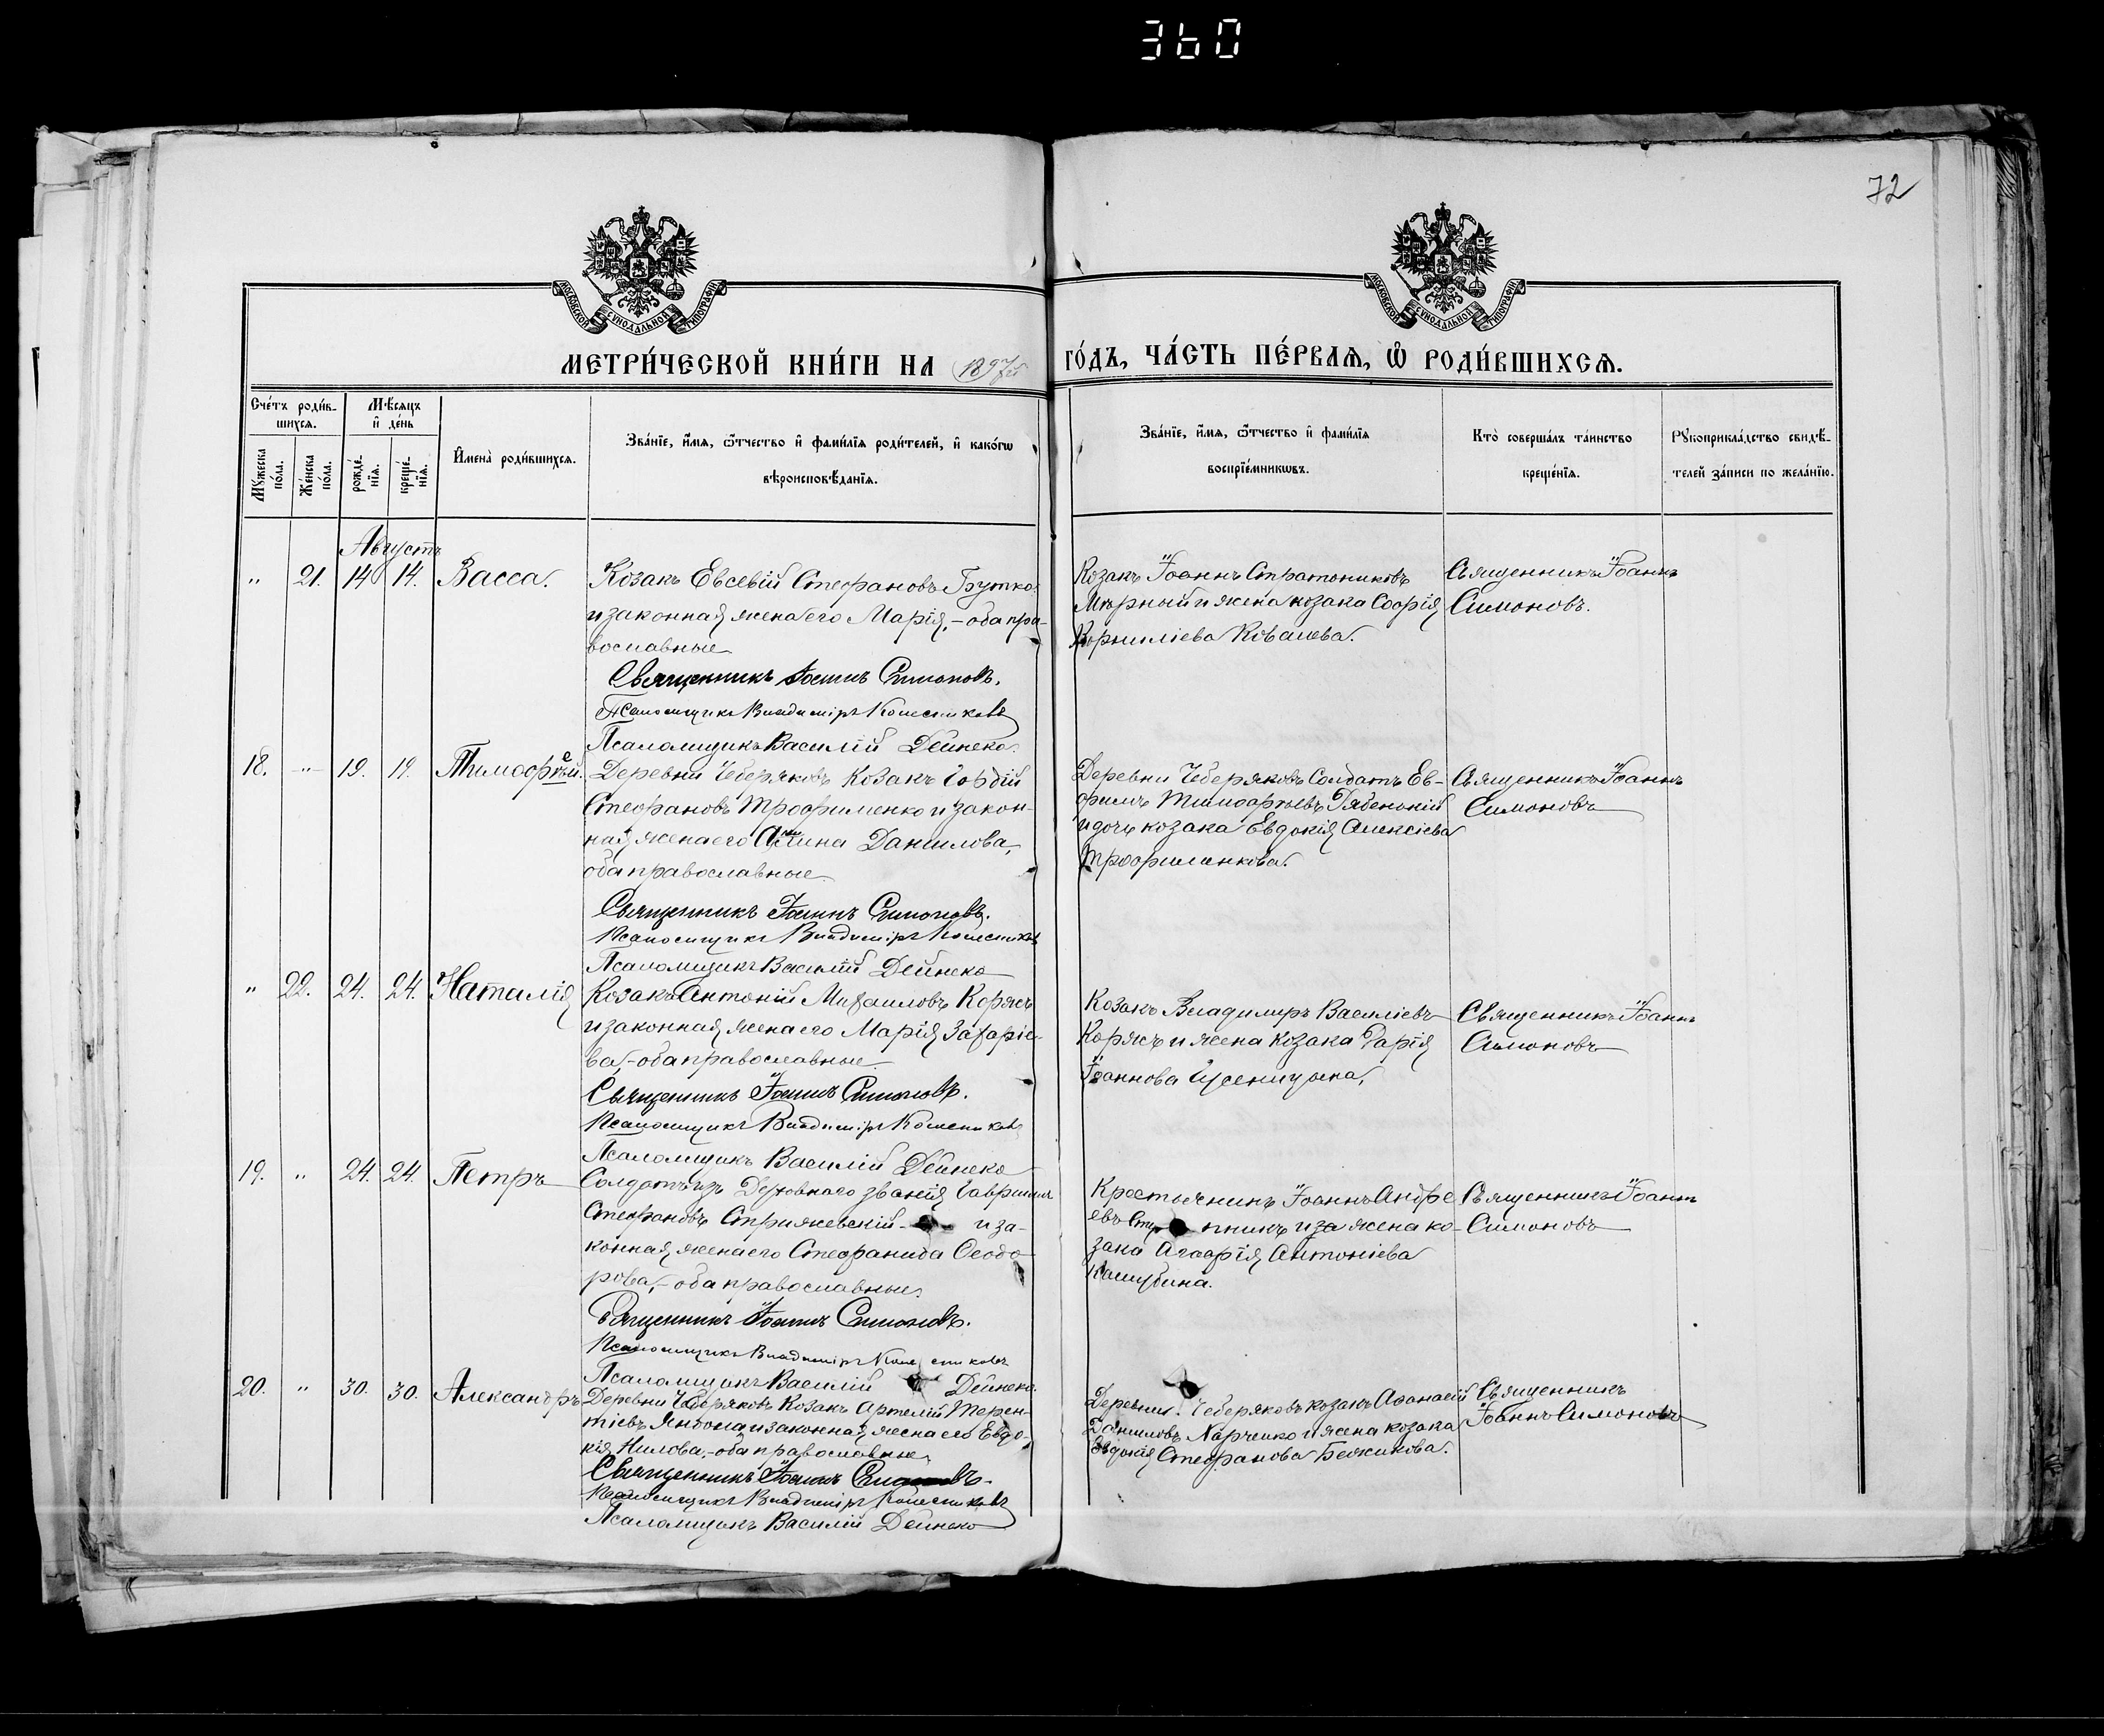 360
72
МОСКОВСКОЙ СѴНОДАЛЬНОЙ ТИПОГРАФІИ
МОСКОВСКОЙ СѴНОДАЛЬНОЙ ТИПОГРАФІИ
МЕТРИ́ЧЕСКОЙ КНИ́ГИ НА 1897й ГО́ДЪ, ЧА́СТЬ ПЕ́РВАЯ, Ѡ҆ РОДИ́ВШИХСЯ.
Сче́тъ роди́в-
шихся.
Мꙋ́жеска
по́ла.
Же́нска
по́ла.
Мѣ́сяцъ
и҆ де́нь
рожде́-
нїя.
креще́-
нїя.
И҆мена̀ роди́вшихся.
Зва́нїе, и҆́мя, ѻ҆́тчество и҆ фами́лїя роди́телей, и҆ како́гѡ
вѣроисповѣ́данїя.
Зва́нїе, и҆́мя, ѻ҆́тчество и҆ фами́лїя
воспрїе́мникѡвъ.
Кто̀ соверша́лъ та́инство
креще́нїя.
Рꙋкоприкла́дство свидѣ́-
телей за́писи по жела́нїю.
Августъ
" 21. 14 14. Васса.
Козакъ Евсевій Стефановъ Бутко
и законная жена его Марія, - оба пра-
вославные
Священникъ Іоаннъ Симоновъ.
Псаломщикъ Владиміръ Колесниковъ
Псаломщикъ Василій Дейнеко.
Козакъ Іоаннъ Стратониковъ
Мѣрный и жена козака Софія
Корниліева Ковалева.
Священникъ Іоаннъ
Симоновъ.
18. " 19. 19. Тимофей.
Деревни Чеберяковъ Козакъ Гордій
Стефановъ Трофименко и закон-
ная жена его Данилова,
оба православные
Священникъ Іоаннъ Симоновъ.
Псаломщикъ Владиміръ Колесниковъ
Псаломщикъ Василій Дейнеко
Деревни Чеберяковъ Солдатъ Ев-
фимъ Тимофѣевъ Рябенькій
и дочь козака Евдокія Алексіева
Трофименкова.
Священникъ Іоаннъ
Симоновъ
" 22. 24. 24. Наталія
Козакъ Антоній Михаиловъ Корякъ
и законная жена его Марія Захаріе-
ва, - оба православные
Священникъ Іоаннъ Симоновъ.
Псаломщикъ Владиміръ Колесниковъ
Псаломщикъ Василій Дейнеко
Козакъ Владимиръ Василіевъ
Корякъ и жена Козака Дарія
Іоаннова
Священникъ Іоаннъ
Симоновъ
19. " 24. 24. Петръ
Солдатъ изъ Духовнаго званія Гавріилъ
Стефановъ Стрижевскій - и за-
конная жена его Стефанида Ѳеодо-
рова, - оба православные.
Священникъ Іоаннъ Симоновъ.
Псаломщикъ Владиміръ Колесниковъ
Псаломщикъ Василій Дейнеко.
Крестьянинъ Іоаннъ Андре
евъ и жена ко-
зака Агафія Антоніева
Кашубина.
Священникъ Іоаннъ
Симоновъ
20. " 30. 30. Александръ
Деревни Чеберяковъ Козакъ Артемій Терен-
тіевъ и законная жена его Евдо-
кія Нилова, - оба православные
Священникъ Іоаннъ Симоновъ.
Псаломщикъ Владиміръ Колесниковъ
Псаломщикъ Василій Дейнеко
Деревни Чеберяковъ козакъ Аѳанасій
Даниловъ Харченко и жена козака
Евдокія Стефанова
Священникъ
Іоаннъ Симоновъ